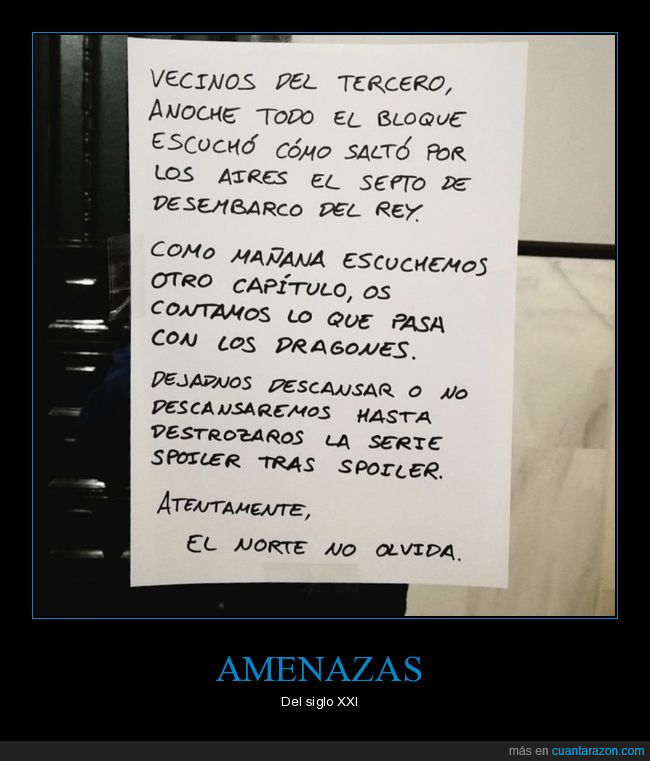 VECINOS DEL TERCERO,
ANOCHE TODO EL BLOQUE
ESCUCHÓ CÓMO SALTÓ POR
LOS AIRES EL SEPTO DE
DESEMBARCO DEL REY.
COMO MAÑANA ESCUCHEMOS
OTRO CAPÍTULO, OS
CONTAMOS LO QUE PASA
CON LOS DRAGONES.
DEJADNOS DESCANSAR O NO
DESCANSAREMOS HASTA
DESTROZAROS LA SERIE
SPOILER TRAS SPOILER.
ATENTAMENTE,
EL NORTE NO OLVIDA.
AMENAZAS
Del siglo XXI
más en cuantarazon.com